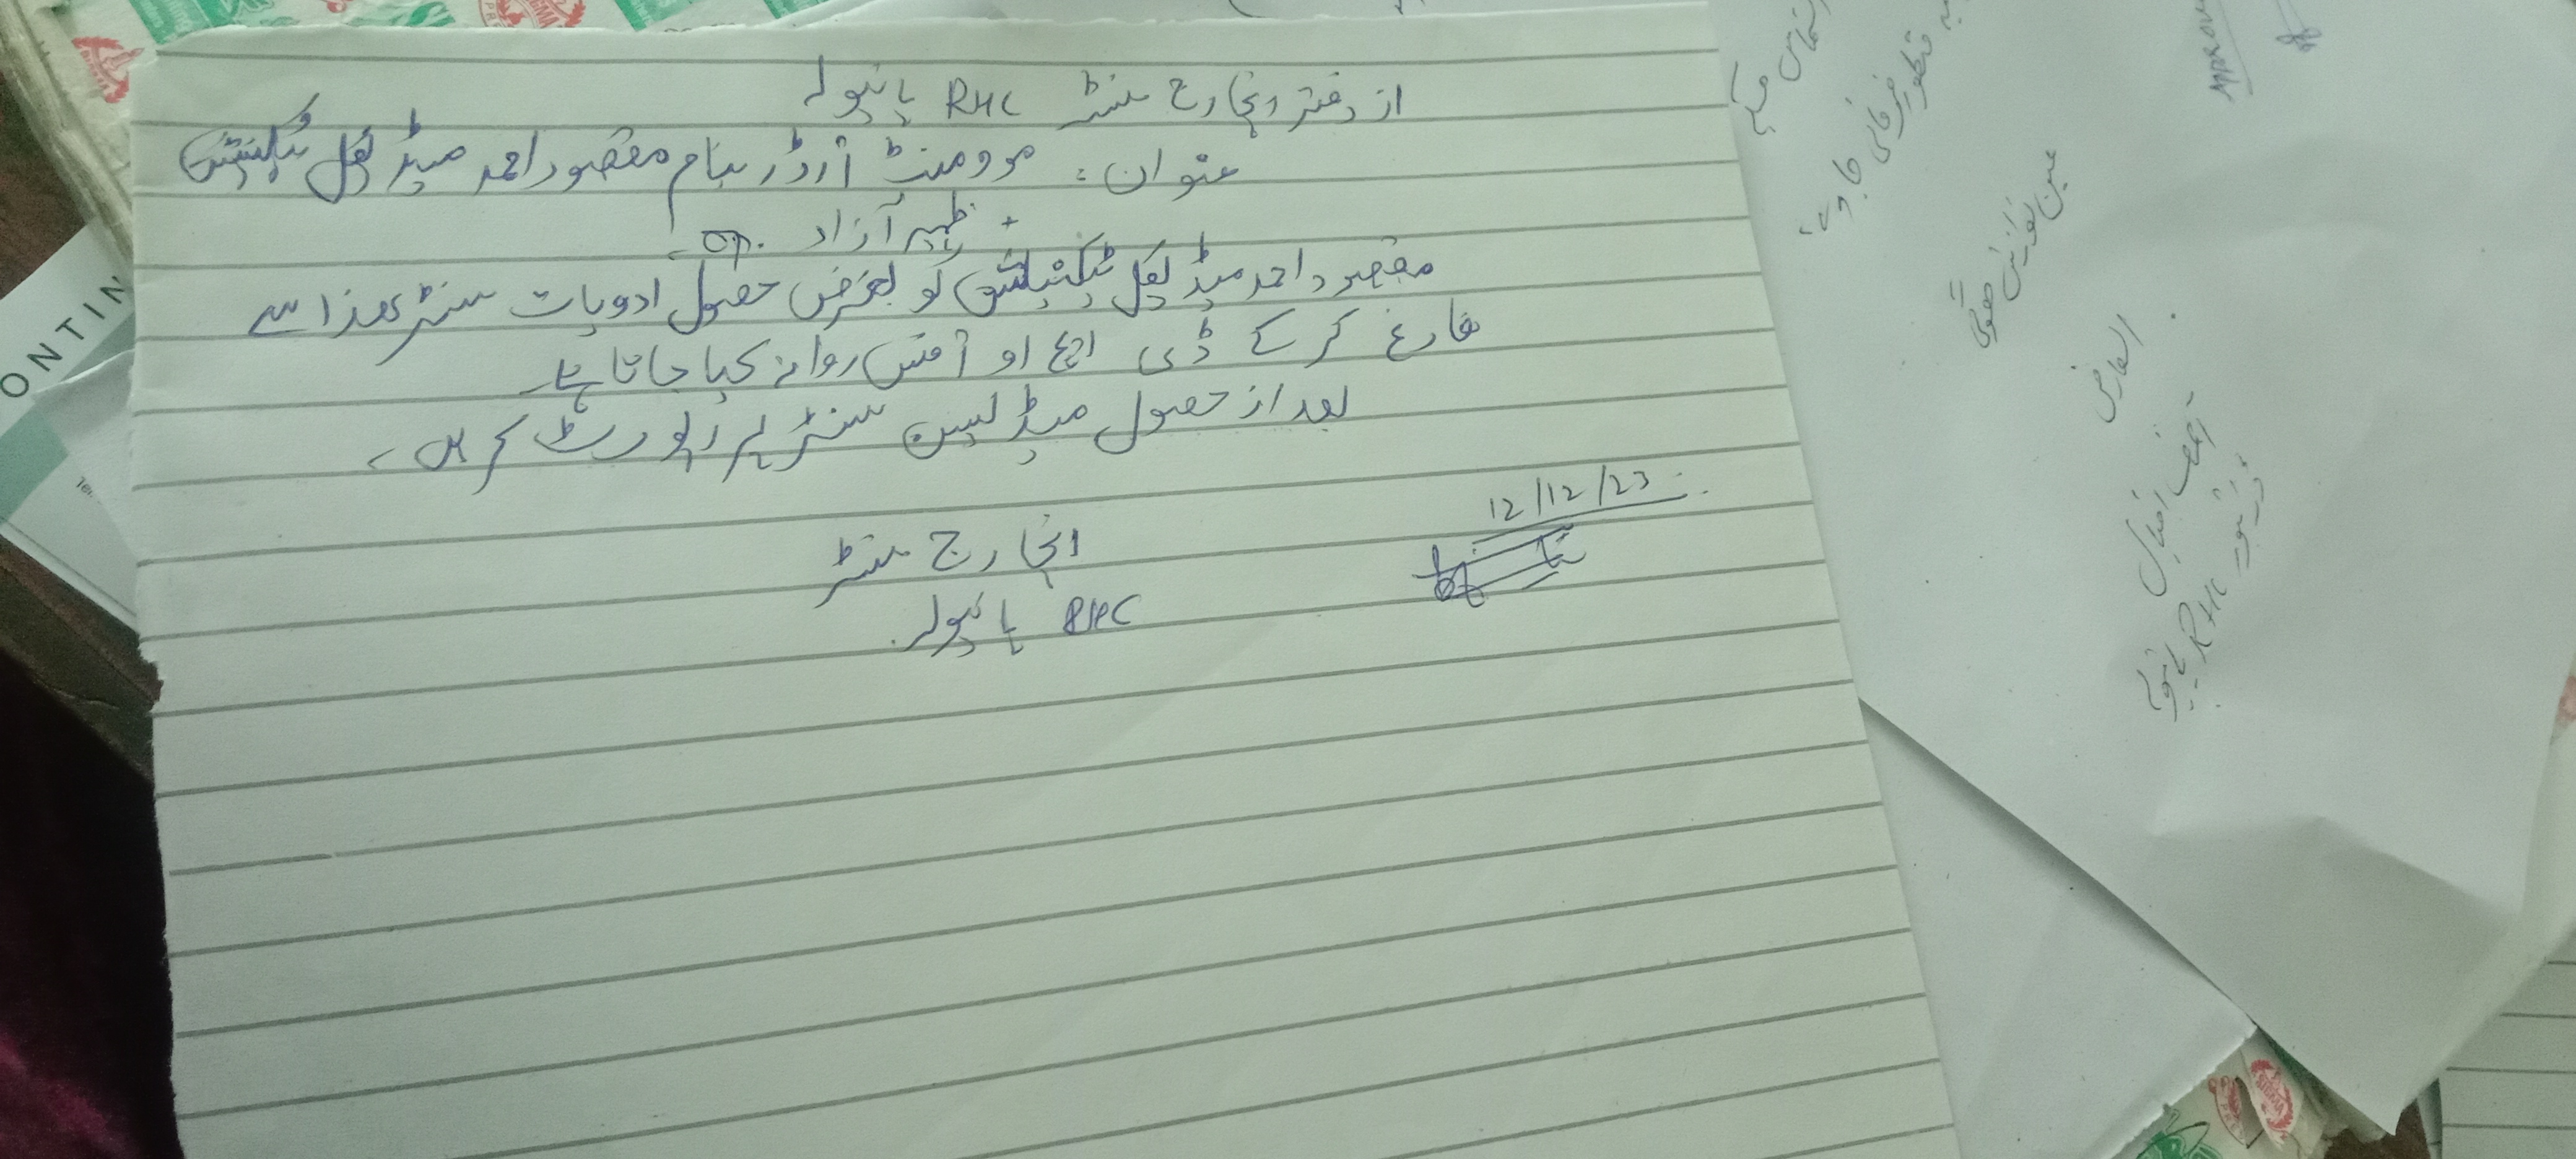 از دفتر انچارج سنٹر RHC پانیولہ
عنوان: موومنٹ آرڈر بنام مقصود احمد میڈیکل ٹیکنیشن
+ ظہیر آزاد
مقصود احمد میڈیکل ٹیکنیشن کو بغرض حصول ادویات سنٹر ھذا سے
فارغ کر کے ڈی ایچ او آفس روانہ کیا جاتا ہے۔
بعد از حصول میڈیسن سنٹر پر رپورٹ کریں۔
12/12/23
انچارج سنٹر
RHC پانیولہ
عین نوازش ہو گی
العارض
آصف اقبال
RHC پانیولہ
ONTIN